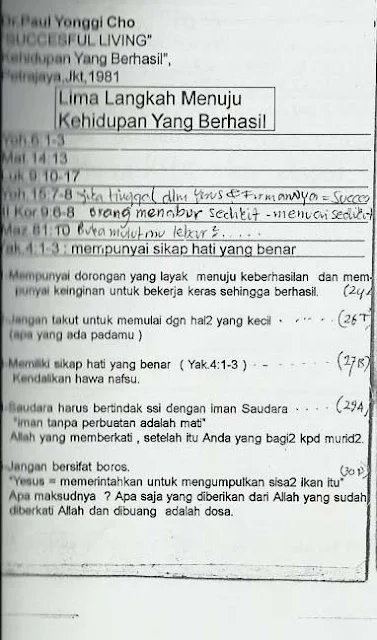 Dr.Paul Yonggi Cho
"SUCCESFUL LIVING"
Kehidupan Yang Berhasil",
Petrajaya,Jkt,1981
Lima Langkah Menuju
Kehidupan Yang Berhasil
Yoh.6:1-3
Mat 14:13
Luk 9:10-17
Yoh.15:7-8 jika tinggal dlm Yesus & FirmanNya = Succes
II Kor 9:6-8 orang menabur sedikit - menuai sedikit
Maz 81:10 Buka mulutmu lebar2.....
Yak.4:1-3 : mempunyai sikap hati yang benar
Mempunyai dorongan yang layak menuju keberhasilan dan mem-
punyai keinginan untuk bekerja keras sehingga berhasil.
Jangan takut untuk memulai dgn hal2 yang kecil
(apa yang ada padamu )
Memiliki sikap hati yang benar ( Yak.4:1-3 )
Kendalikan hawa nafsu.
Saudara harus bertindak ssi dengan iman Saudara
"iman tanpa perbuatan adalah mati"
Allah yang memberkati , setelah itu Anda yang bagi2 kpd murid2.
Jangan bersifat boros.
"Yesus = memerintahkan untuk mengumpulkan sisa2 ikan itu"
Apa maksudnya ? Apa saja yang diberikan dari Allah yang sudah
diberkati Allah dan dibuang adalah dosa.